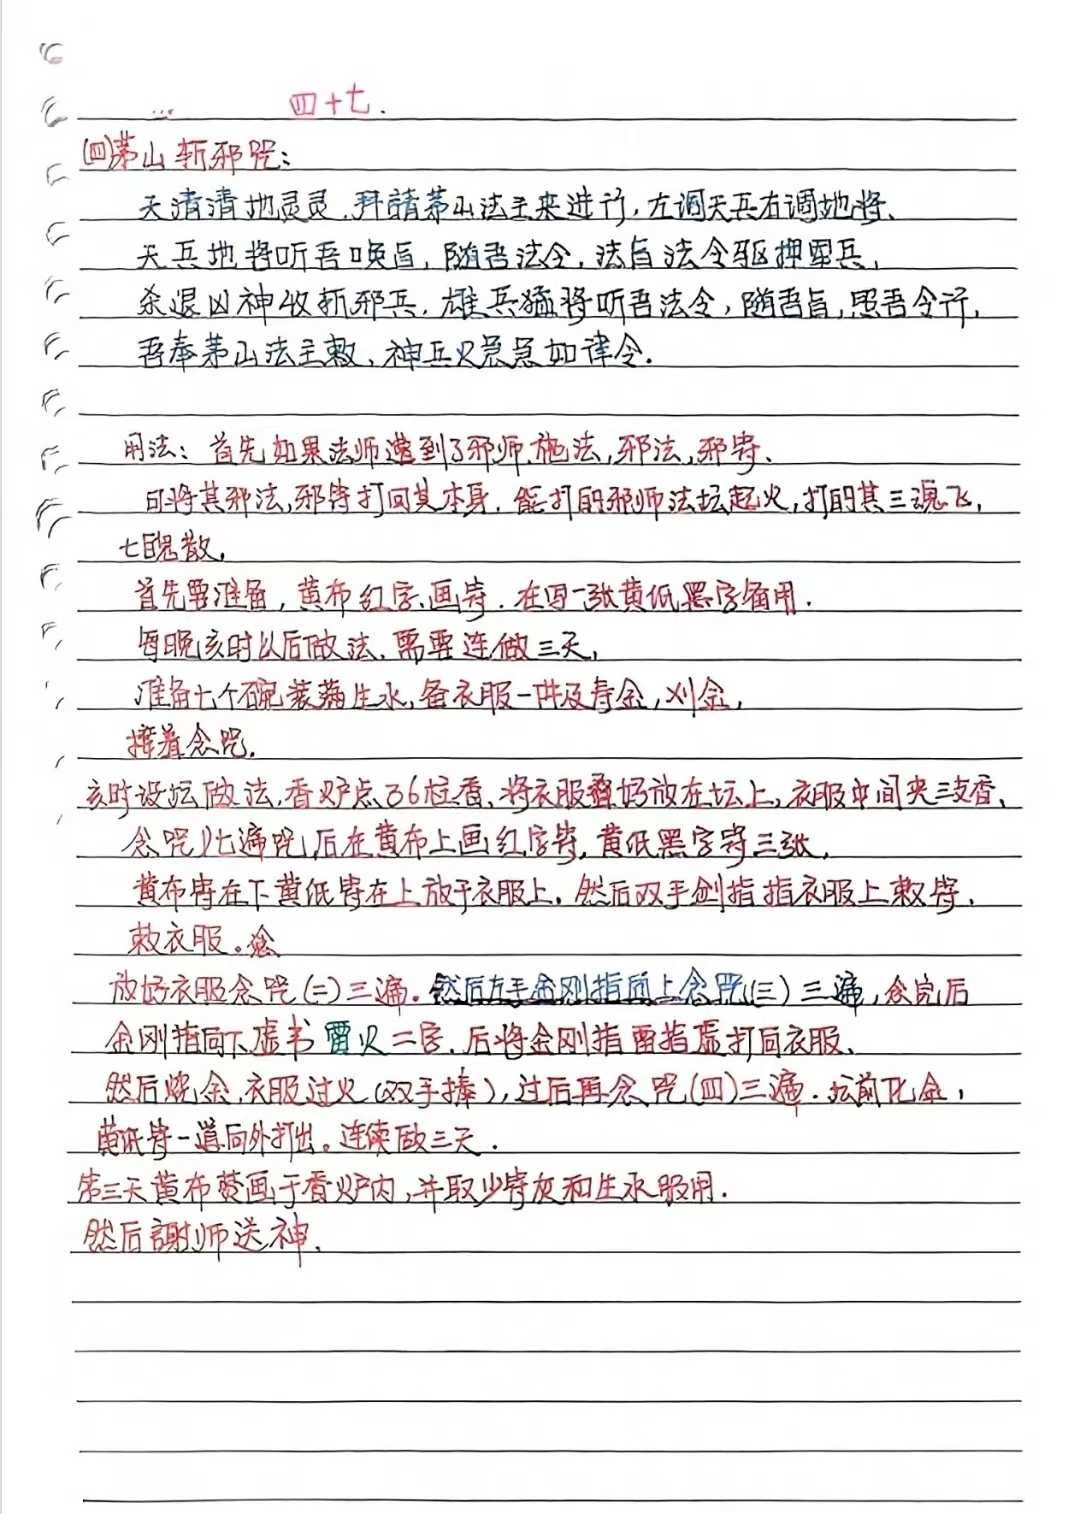 四十七.
(四)茅山斩邪咒:
天清清地灵灵,拜請茅山法主来进行,左调天兵右调地将、
天兵地将听吾唤旨,随吾法令,法旨法令驱押军兵,
杀退凶神收斩邪兵,雄兵猛将听吾法令,随吾旨,照吾令行,
吾奉茅山法主敕、神兵火急急如律令.
用法:首先如果法师遭到了邪师施法,邪法,邪符、
可将其邪法,邪符打回其本身.能打的邪师法坛起火,打的其三魂飞,
七魄散,
首先要准备,黄布红字画符.在写一张黄纸黑字备用.
每晚亥时以后做法、需要连做三天,
准备七个碗装满生水,备衣服一件及寿金,刈金,
接着念咒.
亥时设坛做法,香炉点36柱香、将衣服叠好放在坛上,衣服中间夹三支香、
念咒(七遍咒)后在黄布上画红字符,黄纸黑字符三张,
黄布符在下黄纸符在上放于衣服上.然后双手剑指指衣服上敕符.
敕衣服。念
放好衣服念咒(二)三遍.然后左手金刚指向上念咒(三)三遍,念完后
金刚指向下虚书雷火二字.后将金刚指雷指虚打向衣服、
然后烧金,衣服过火(双手捧),过后再念咒(四)三遍.坛前化金,
黄纸符一道向外打出。连续做三天.
第三天黄布焚画于香炉内,并取少符灰和生水服用.
然后謝师送神、